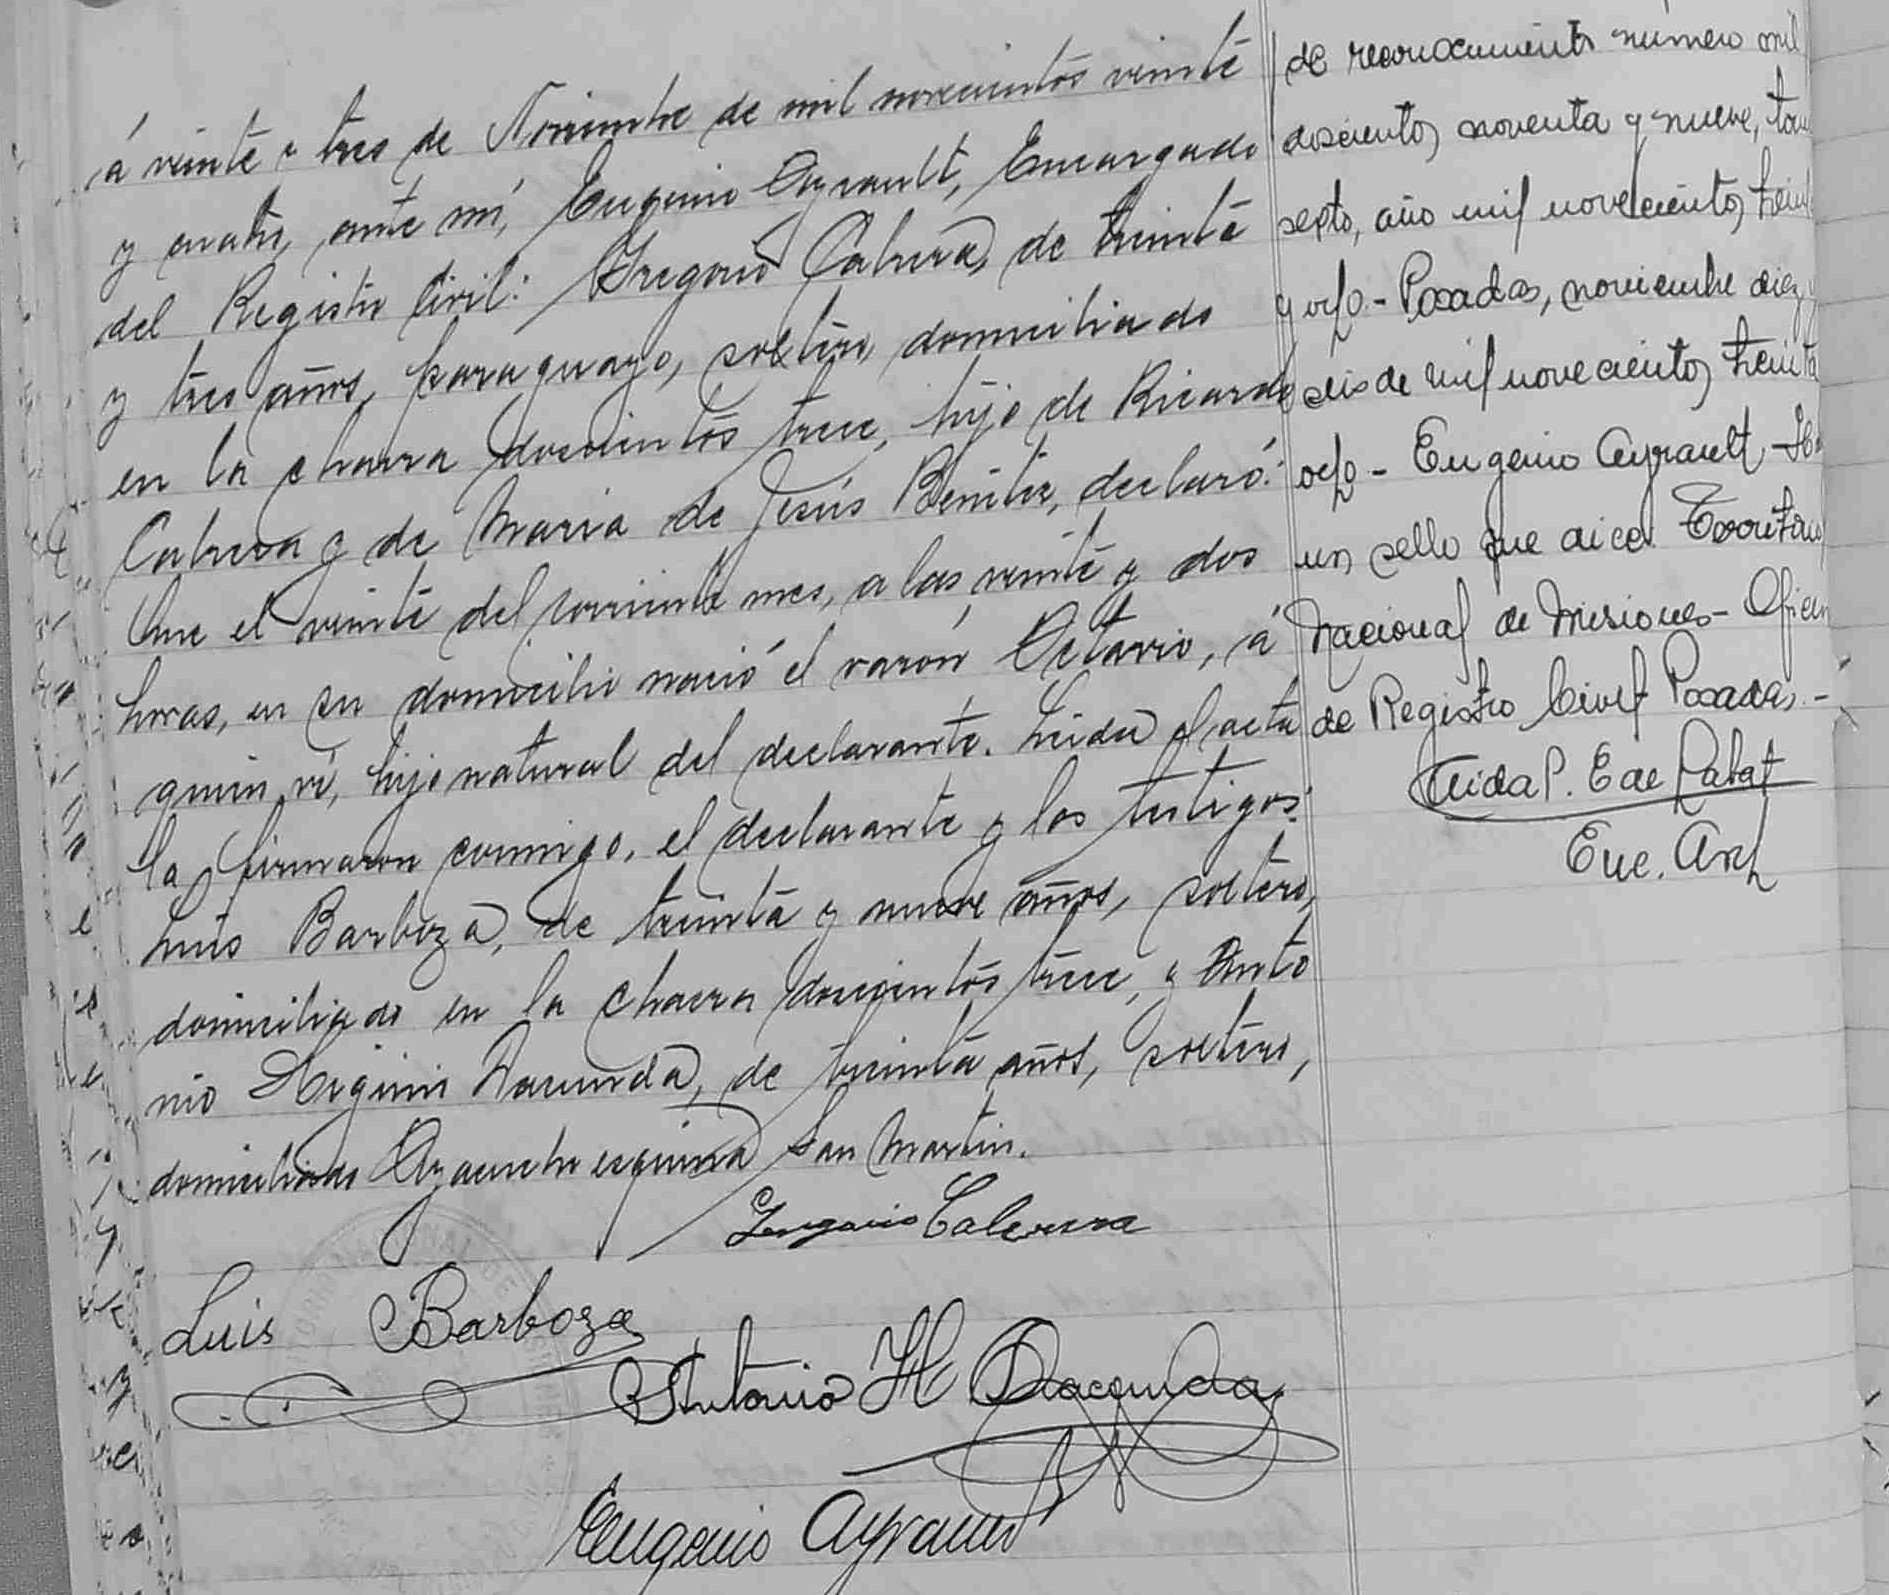 á veinte y tres de Noviembre de mil novecientos veinte
y cuatro, ante mí, Eugenio Ayrault, Encargado
del Registro Civil: Gregorio Cabrera, de treinta
y tres años, paraguayo, soltero, domiciliado
en la chacra doscientos trece, hijo de Ricardo
Cabrera y de Maria de Jesús Benitez, declaró:
Que el veinte del corriente mes, a las veinte y dos
horas, en su domicilio nació el varón Octavio, á
quien ví, hijo natural del declarante. Leida el acta
la firmaron conmigo, el declarante y los testigos:
Luis Barboza, de treinta y nueve años, soltero,
domiciliado en la chacra doscientos trece, y Anto
nio Higinio Dacunda, de treinta años, soltero,
domiciliado Ayacucho esquina San Martin.
Gregorio Cabrera
Luis Barboza
Antonio H Dacunda
Eugenio Ayrault
de reconocimiento número mil
doscientos noventa y nueve, tomo
sexto, año mil novecientos treinta
y ocho.- Posadas, noviembre diez y
seis de mil novecientos treinta
ocho - Eugenio Ayrault - Hay
un sello que dice: Territorio
Nacional de Misiones - Oficina
de Registro Civil Posadas.-
P. E de Labat
Enc. Arch